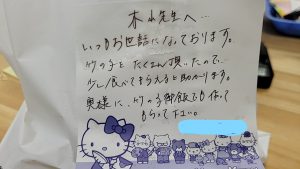 木山先生へ…
いつもお世話になっております。
竹の子をたくさん頂いたので…
少し食べてもらえると助かります。
奥様に、竹の子御飯でも作って
もらって下さい。